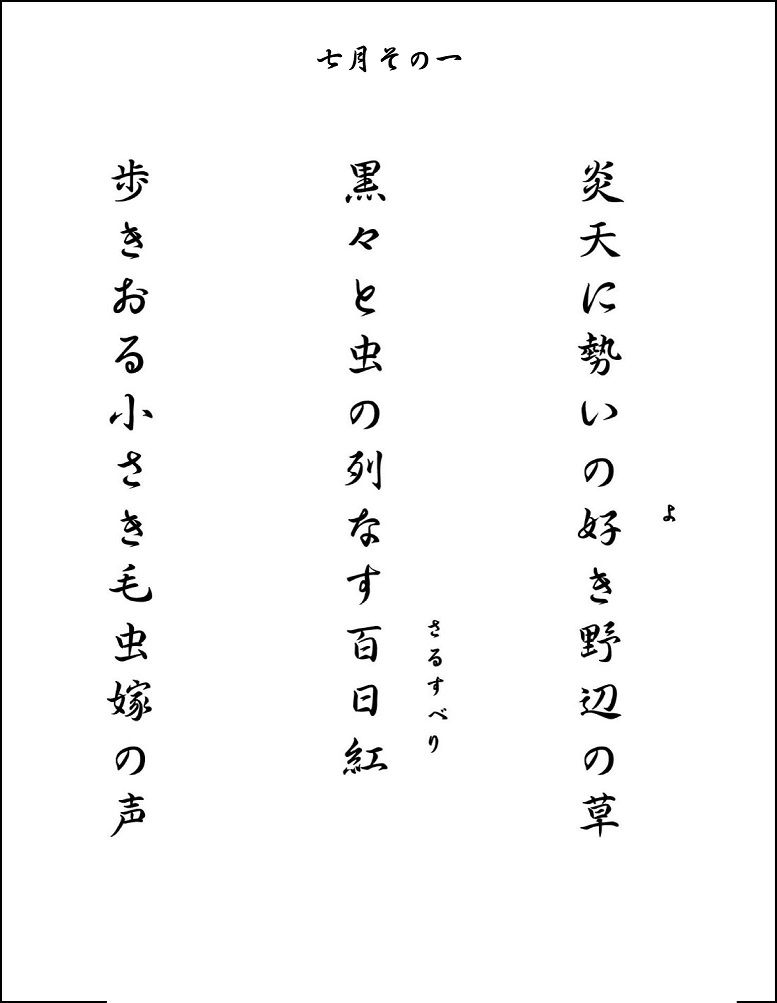 七月その一
炎天に勢いの好き野辺の草
よ
黒々と虫の列なす百日紅
さるすべり
歩きおる小さき毛虫嫁の声